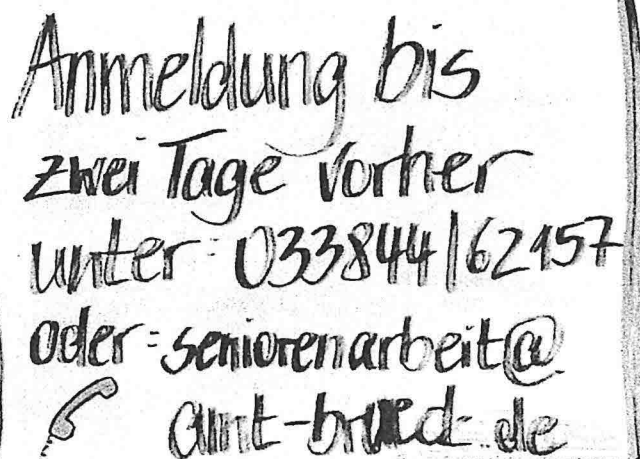 Anmeldung bis
zwei Tage vorher
unter: 033844/62157
oder: seniorenarbeit@
amt-brueck.de